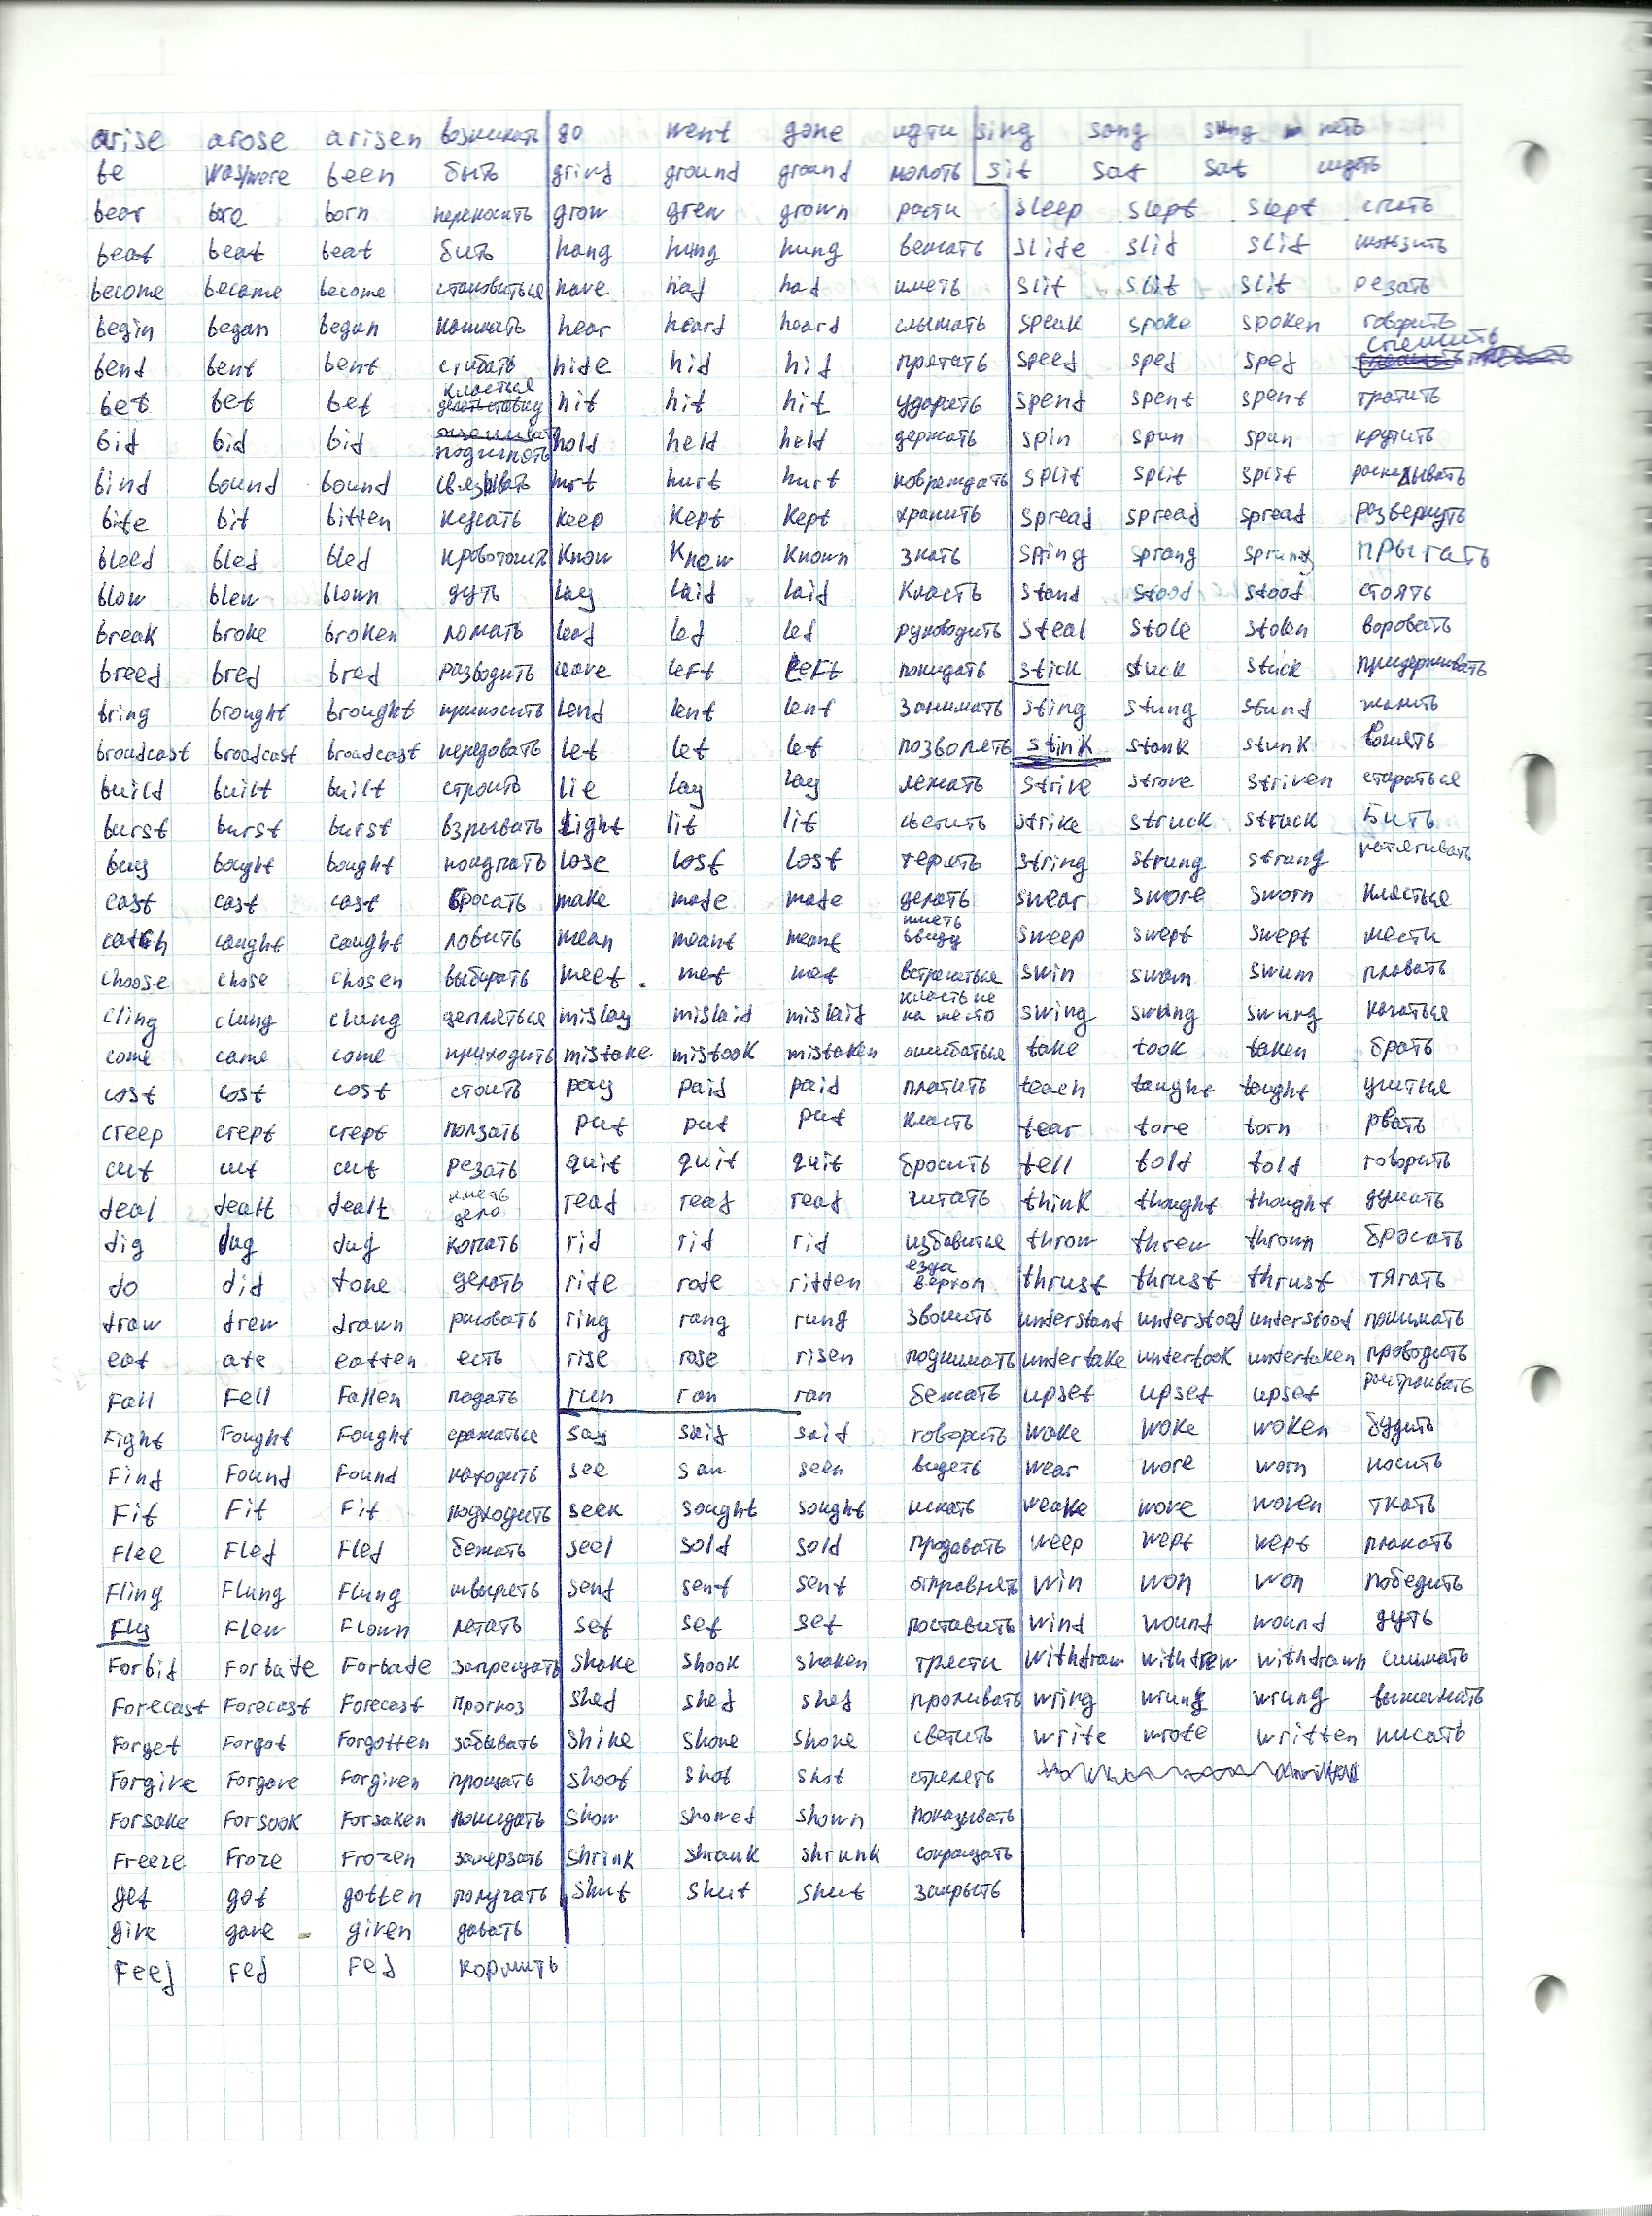 arise arose arisen возникать go went gone идти sing song sung петь
be was/were been быть grind ground ground молоть sit sat sat сидеть
bear bore born переносить grow grew grown расти sleep slept slept спать
beat beat beat бить hang hung hung вешать slide slid slid скользить
become became become становиться have had had иметь slit slit slit резать
begin began began начинать hear heard heard слышать speak spoke spoken говорить
bend bent bent сгибать hide hid hid прятать speed sped sped спешить
bet bet bet класться hit hit hit ударять spend spent spent тратить
bid bid bid hold held held держать spin spun spun крутить
bind bound bound связывать hurt hurt повреждать split split split
bite bit bitten кусать keep kept kept хранить spread spread spread развернуть
bleed bled bled кровоточить know knew known знать spring sprang sprung прыгать
blow blew blown дуть lay laid laid класть stand stood stood стоять
break broke broken ломать lead led led руководить steal stole stolen воровать
breed bred bred разводить leave left left покидать stick stuck stuck придерживать
bring brought brought приносить lend lent lent занимать sting stung stund жалить
broadcast broadcast broadcast передовать let let let позволять stink stank stunk вонять
build built built строить lie lay lay лежать strive strove striven стараться
burst burst burst взрывать light lit lit светить strike struck struck бить
buy bought bought покупать lose lost lost терять string strung strung натягивать
cast cast cast бросать make made made делать swear swore sworn класться
catch caught caught ловить mean meant meant иметь ввиду sweep swept swept мести
choose chose chosen выбирать meet met met встречаться swin swam swum плавать
cling clung clung цепляться mislay mislaid mislaid класть не на место swing swung swung качаться
come came come приходить mistake mistook mistaken ошибаться take took taken брать
cost cost cost стоить pay paid paid платить teach taught tought учиться
creep crept crept ползать put put put класть tear tore torn рвать
cut cut cut резать quit quit quit бросить tell told told говорить
deal dealt dealt иметь дело read read read читать think thought thought думать
dig dug dug копать rid rid rid избавиться throw threw thrown бросать
do did done делать ride rode ridden езда верхом thrust thrust thrust тягать
draw drew drawn рисовать ring rang rung звонить understand understood understood понимать
eat ate eatten есть rise rose risen поднимать undertake undertook undertaken проводить
Fall Fell Fallen падать run ran ran бежать upset upset upset растраивать
Fight Fought Fought сражаться say said said говорить wake woke woken будить
Find Found Found находить see saw seen видеть wear wore worn носить
Fit Fit Fit подходить seek sought sought искать weake wove woven ткать
Flee Fled Fled бежать seel sold sold продавать weep wept wept плакать
Fling Flung Flung швырять send sent sent отправлять win won won победить
Fly Flew Flown летать set set set поставить wind wound wound дуть
Forbid Forbade Forbade запрещать shake shook shaken трясти withdraw withdrew withdrawn снимать
Forecast Forecast Forecast прогноз shed shed shed проливать wring wrung wrung выжимать
Forget Forgot Forgotten забывать shine shone shone светить write wrote written писать
Forgive Forgave Forgiven прощать shoot shot shot стрелять
Forsake Forsook Forsaken покидать show showed shown показывать
Freeze Froze Frozen замерзать shrink shrank shrunk сокращать
get got gotten получать shut shut shut закрыть
give gave given давать
Feed Fed Fed кормить